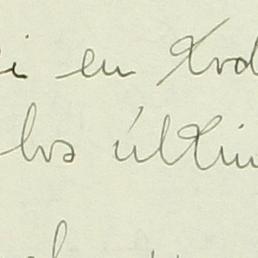 i en tod
los últim